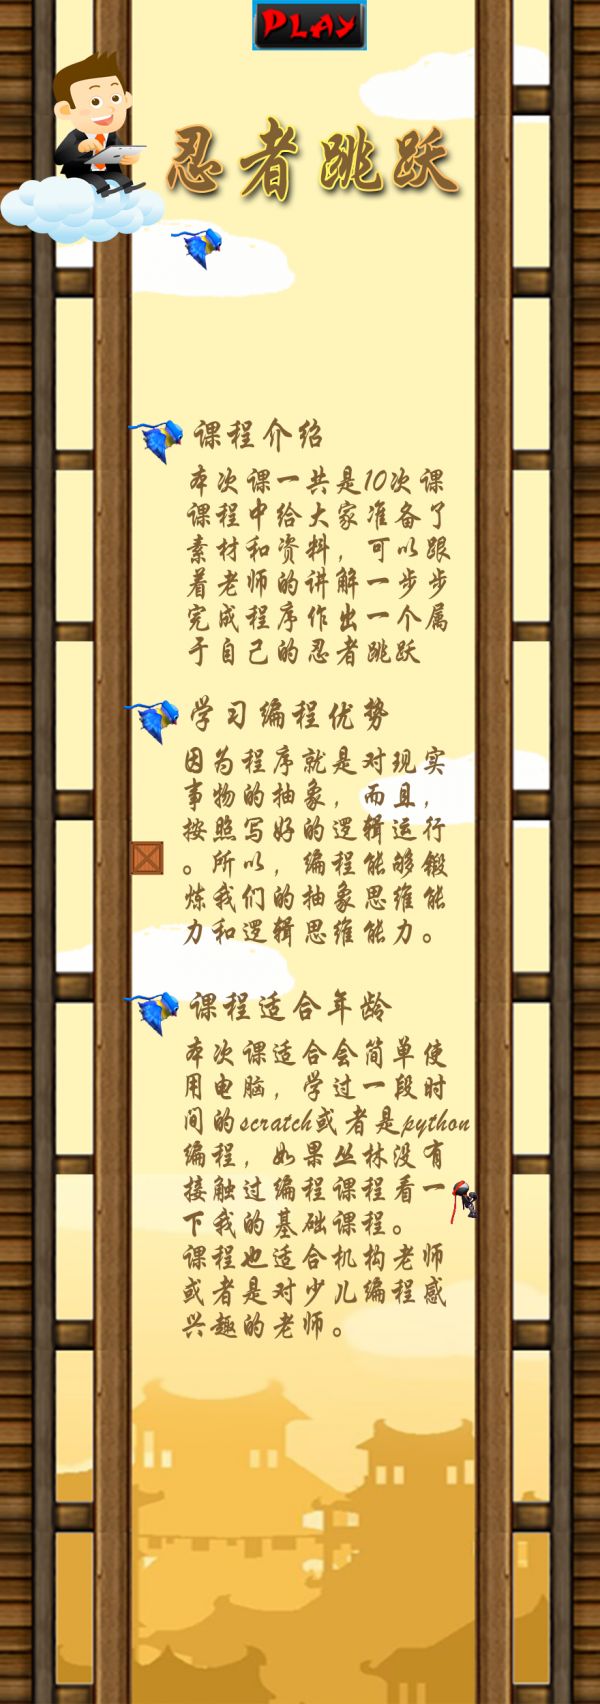 PLAY
忍者跳跃
课程介绍
本次课一共是10次课
课程中给大家准备了
素材和资料，可以跟
着老师的讲解一步步
完成程序作出一个属
于自己的忍者跳跃
学习编程优势
因为程序就是对现实
事物的抽象，而且，
按照写好的逻辑运行
。所以，编程能够锻
炼我们的抽象思维能
力和逻辑思维能力。
课程适合年龄
本次课适合会简单使
用电脑，学过一段时
间的scratch或者是python
编程，如果丛林没有
接触过编程课程看一
下我的基础课程。
课程也适合机构老师
或者是对少儿编程感
兴趣的老师。